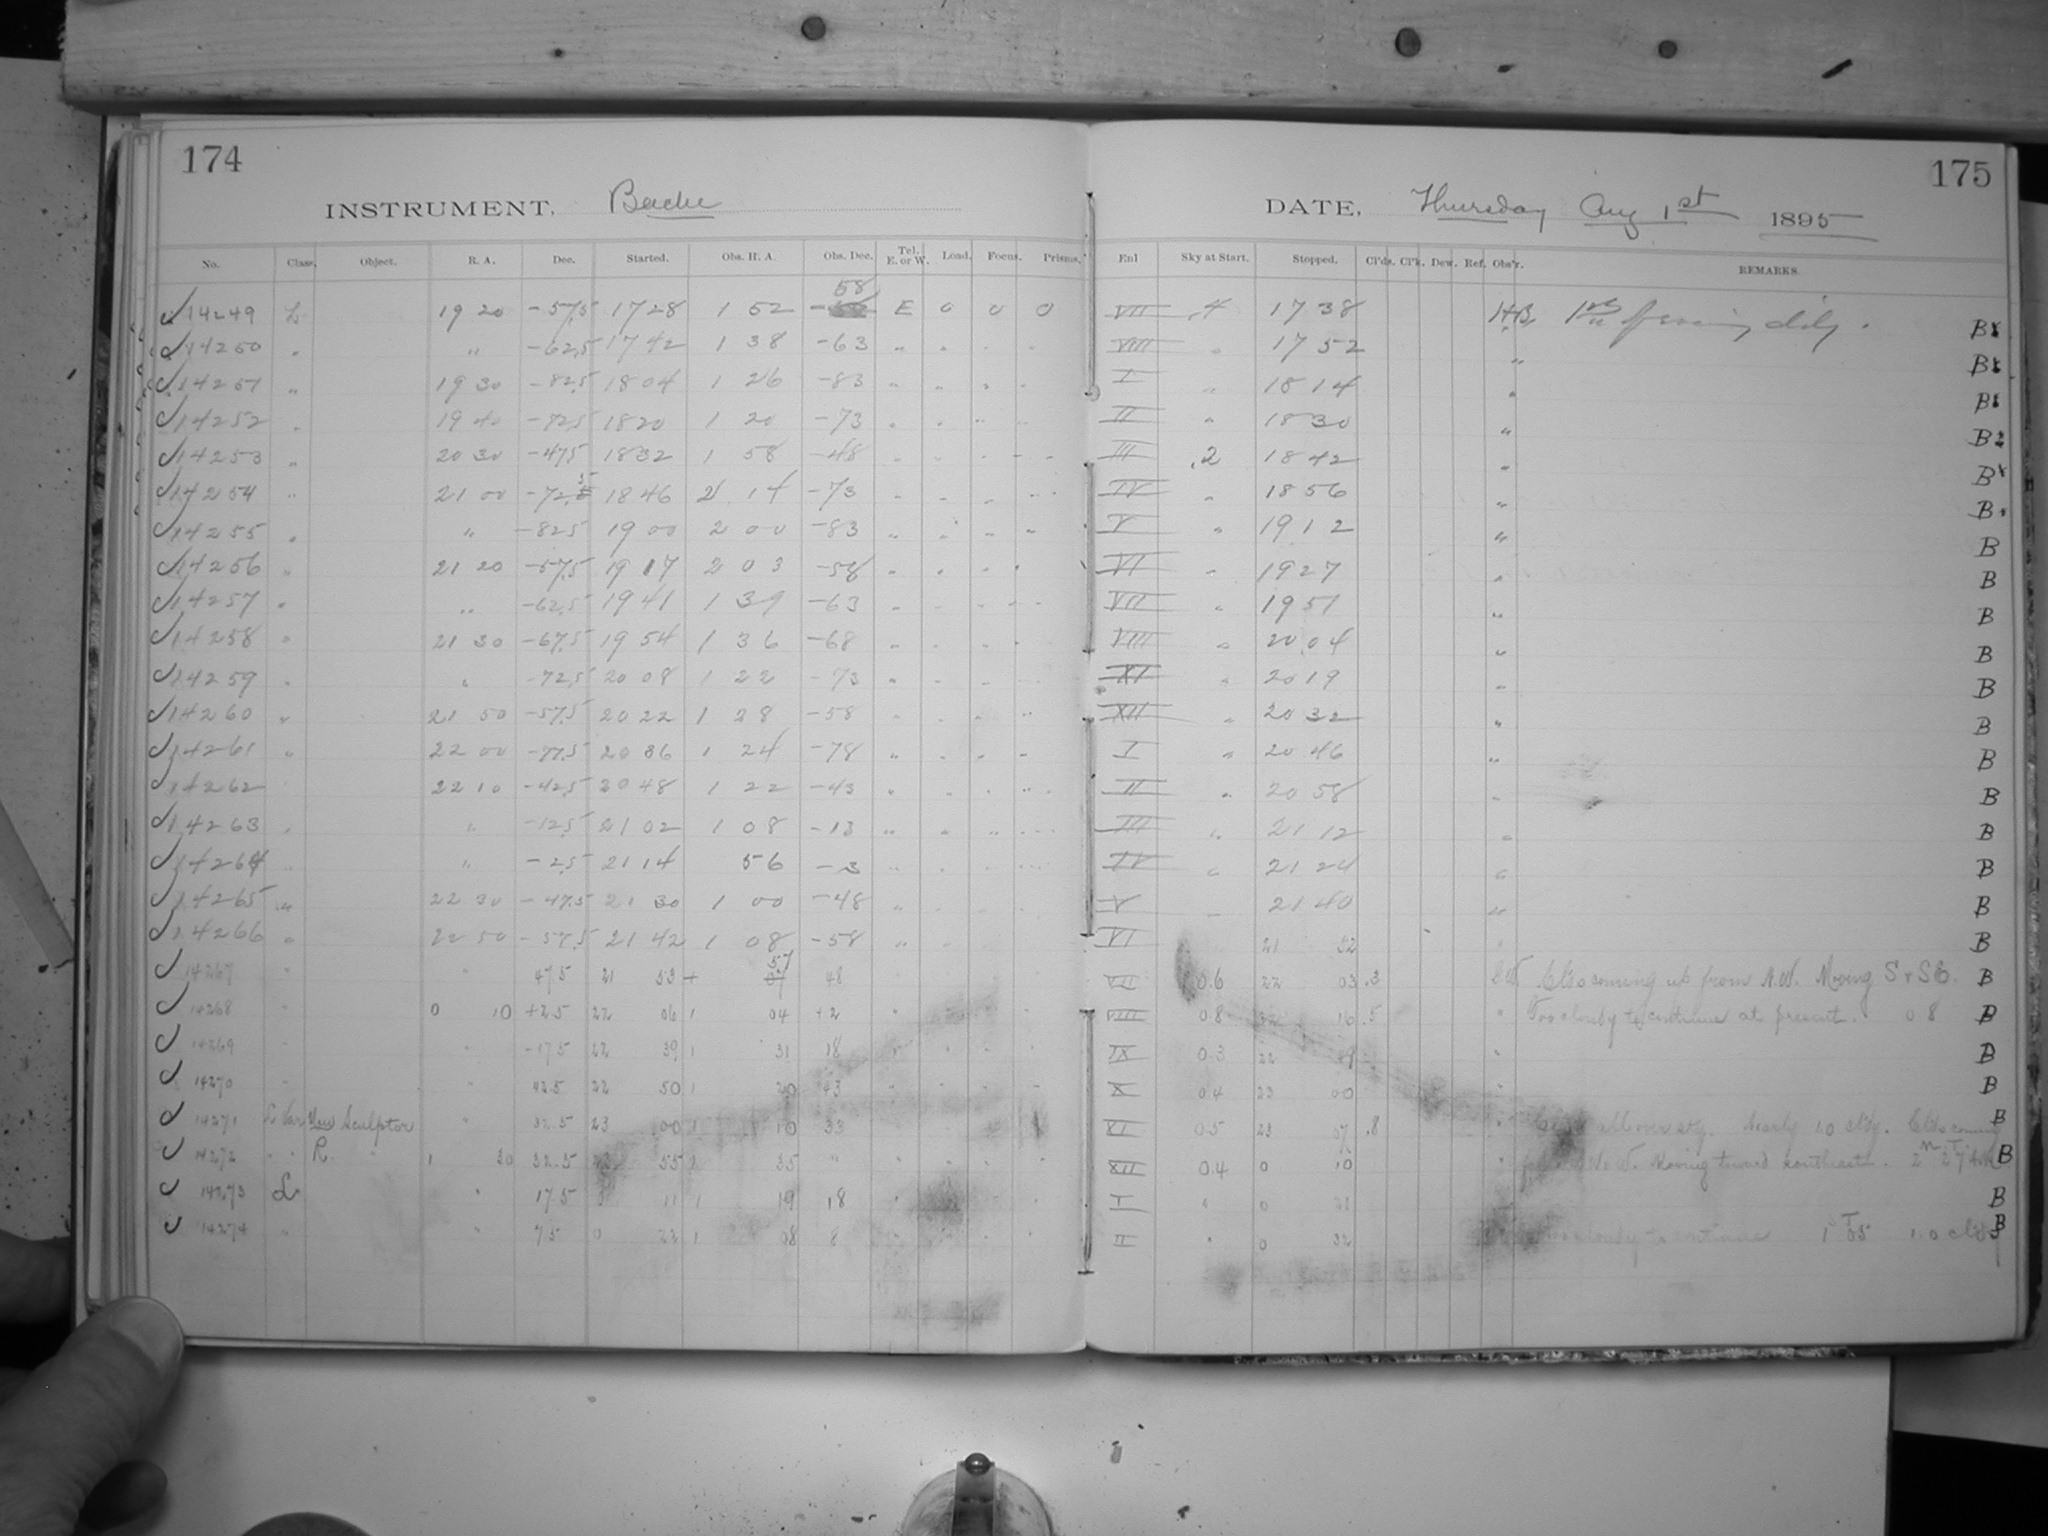 174
175
INSTRUMENT, Bache
DATE, Thursday Aug 1st 1895
No. Class. Object. R. A. Dec. Started. Obs. H. A. Obs. Dec. Tel. E. or W. Load. Focus. Prisms. Enl Sky at Start. Stopped. Cl'ds. Cl'k. Dew. Ref. Obs'r. REMARKS.
58
14249 L 19 20 -57.5 17 28 1 52 E 0 0 0 VII .4 17 38 HB B
14250 " " -62.5 17 42 1 38 -63 " " " " VIII " 17 52 " B
14251 " 19 30 -82.5 18 04 1 26 -83 " " " " I " 18 14 " B
14252 " 19 40 -72.5 18 20 1 20 -73 " " " " II " 18 30 " B
14253 " 20 30 -47.5 18 32 1 58 -48 " " " " III .2 18 42 " B
14254 " 21 00 -72.5 18 46 2 14 -73 " " " " IV " 18 56 " B
14255 " " -82.5 19 00 2 00 -83 " " " " V " 19 12 " B
14256 " 21 20 -57.5 19 17 2 03 -58 " " " " VI " 19 27 " B
14257 " " -62.5 19 41 1 39 -63 " " " " VII " 19 51 " B
14258 " 21 30 -67.5 19 54 1 36 -68 " " " " VIII " 20 04 " B
14259 " " -72.5 20 08 1 22 -73 " " " " XI " 20 19 " B
14260 " 21 50 -57.5 20 22 1 28 -58 " " " " XII " 20 32 " B
14261 " 22 00 -77.5 20 36 1 24 -78 " " " " I " 20 46 " B
14262 22 10 -42.5 20 48 1 22 -43 " " " " II " 20 58 " B
14263 " " -12.5 21 02 1 08 -13 " " " " III " 21 12 " B
14264 " " -2.5 21 14 56 -3 IV " 21 24 " B
14265 " 22 30 -47.5 21 30 1 00 -48 " " " V " 21 40 " B
14266 " 22 50 -57.5 21 42 1 08 -58 " " VI 21 52 " B
14267 " " 47.5 21 53 + 57 48 VII 0.6 22 03 .3 Clds coming up from N.W. Moving S & SE. B
14268 " 0 10 +2.5 22 06 1 04 +2 " VIII 0.8 22 16 .5 " Too cloudy to continue at present. 0 8 B
14269 " -17.5 22 39 1 31 18 " IX 0.3 22 49 " B
14270 " " 42.5 22 50 1 20 43 X 0.4 23 00 " B
14271 L Var New Sculptor " 32.5 23 00 1 10 33 XI 0.5 23 07 .8 " all over sky. Nearly 1.0 cldy. Clds coming B
14272 " " R. " 1 30 32.5 23 55 1 35 " XII 0.4 0 10 " Moving toward southeast. B
14273 L " 17.5 11 1 19 18 I " 0 B
14274 " " 7.5 0 22 1 08 8 II " 0 32 cloudy to continue 1.0 B